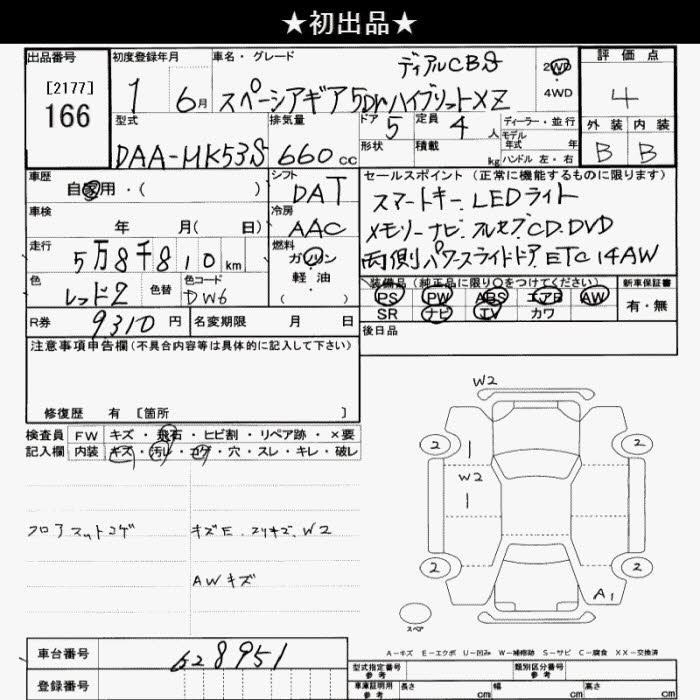 ★初出品★
出品番号 初度登録年月 車名・グレード 評価点
[2177] 166
1 6月 スペーシアギア 5Dr ハイブリットXZ ディアルCBS
2WD 4WD
4
型式 排気量 ドア 定員 ディーラー・並行
DAA-MK53S 660cc 5 4人
形状 積載 kg モデル年式 年 ハンドル 左・右
外装 内装
B B
車歴 自家用・( )
シフト DAT
セールスポイント(正常に機能するものに限ります)
スマートキー.LEDライト
メモリーナビ.フルセグCD.DVD
両側パワースライドドア.ETC 14AW
車検 年 月( 日)
冷房 AAC
走行 5万8千810km
燃料 ガソリン・軽油 ( )
色 レッド2 色替 色コード DW6
装備品(純正品に限り○をつけてください) 新車保証書
PS PW ABS エアB AW 有・無
SR ナビ TV カワ
R券 9310円 名変期限 月 日
後日品
注意事項申告欄(不具合内容等は具体的に記入して下さい)
修復歴 有 〔箇所 〕
検査員 FW キズ・飛石・ヒビ割・リペア跡・×要
記入欄 内装 キズ・汚レ・コゲ・穴・スレ・キレ・破レ
フロアマットコゲ キズE.スリキズ.W2
AWキズ
W2
2 2
W2
2 2
A1
スペア
A-キズ E-エクボ U-凹み W-補修跡 S-サビ C-腐食 XX-交換済
車台番号 628951
登録番号
型式指定番号 参考 類別区分番号 参考
車庫証明用 参考 長さ cm 幅 cm 高さ cm